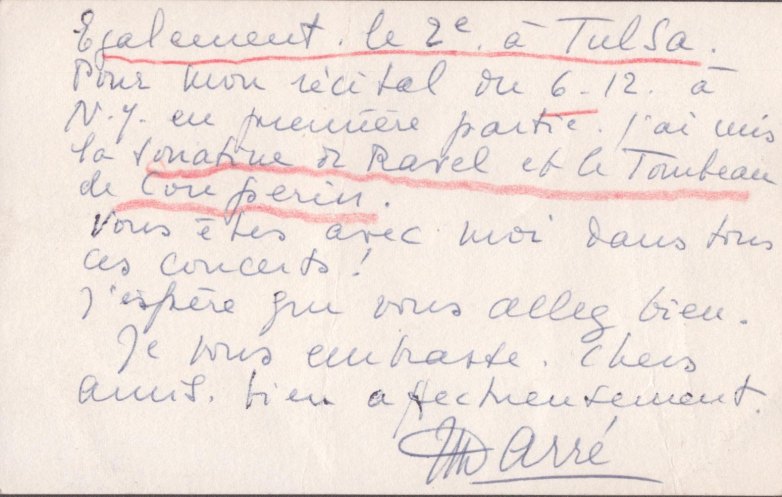 Egalement. le 2e. à Tulsa.
Pour mon récital du 6-12. à
N.Y. en première partie. j'ai mis
la Sonatine de Ravel et le Tombeau
de Couperin.
Vous êtes avec moi dans tous
ces concerts!
J'espère que vous allez bien.
Je vous embrasse. Chers
amis. bien affectueusement.
MDarré